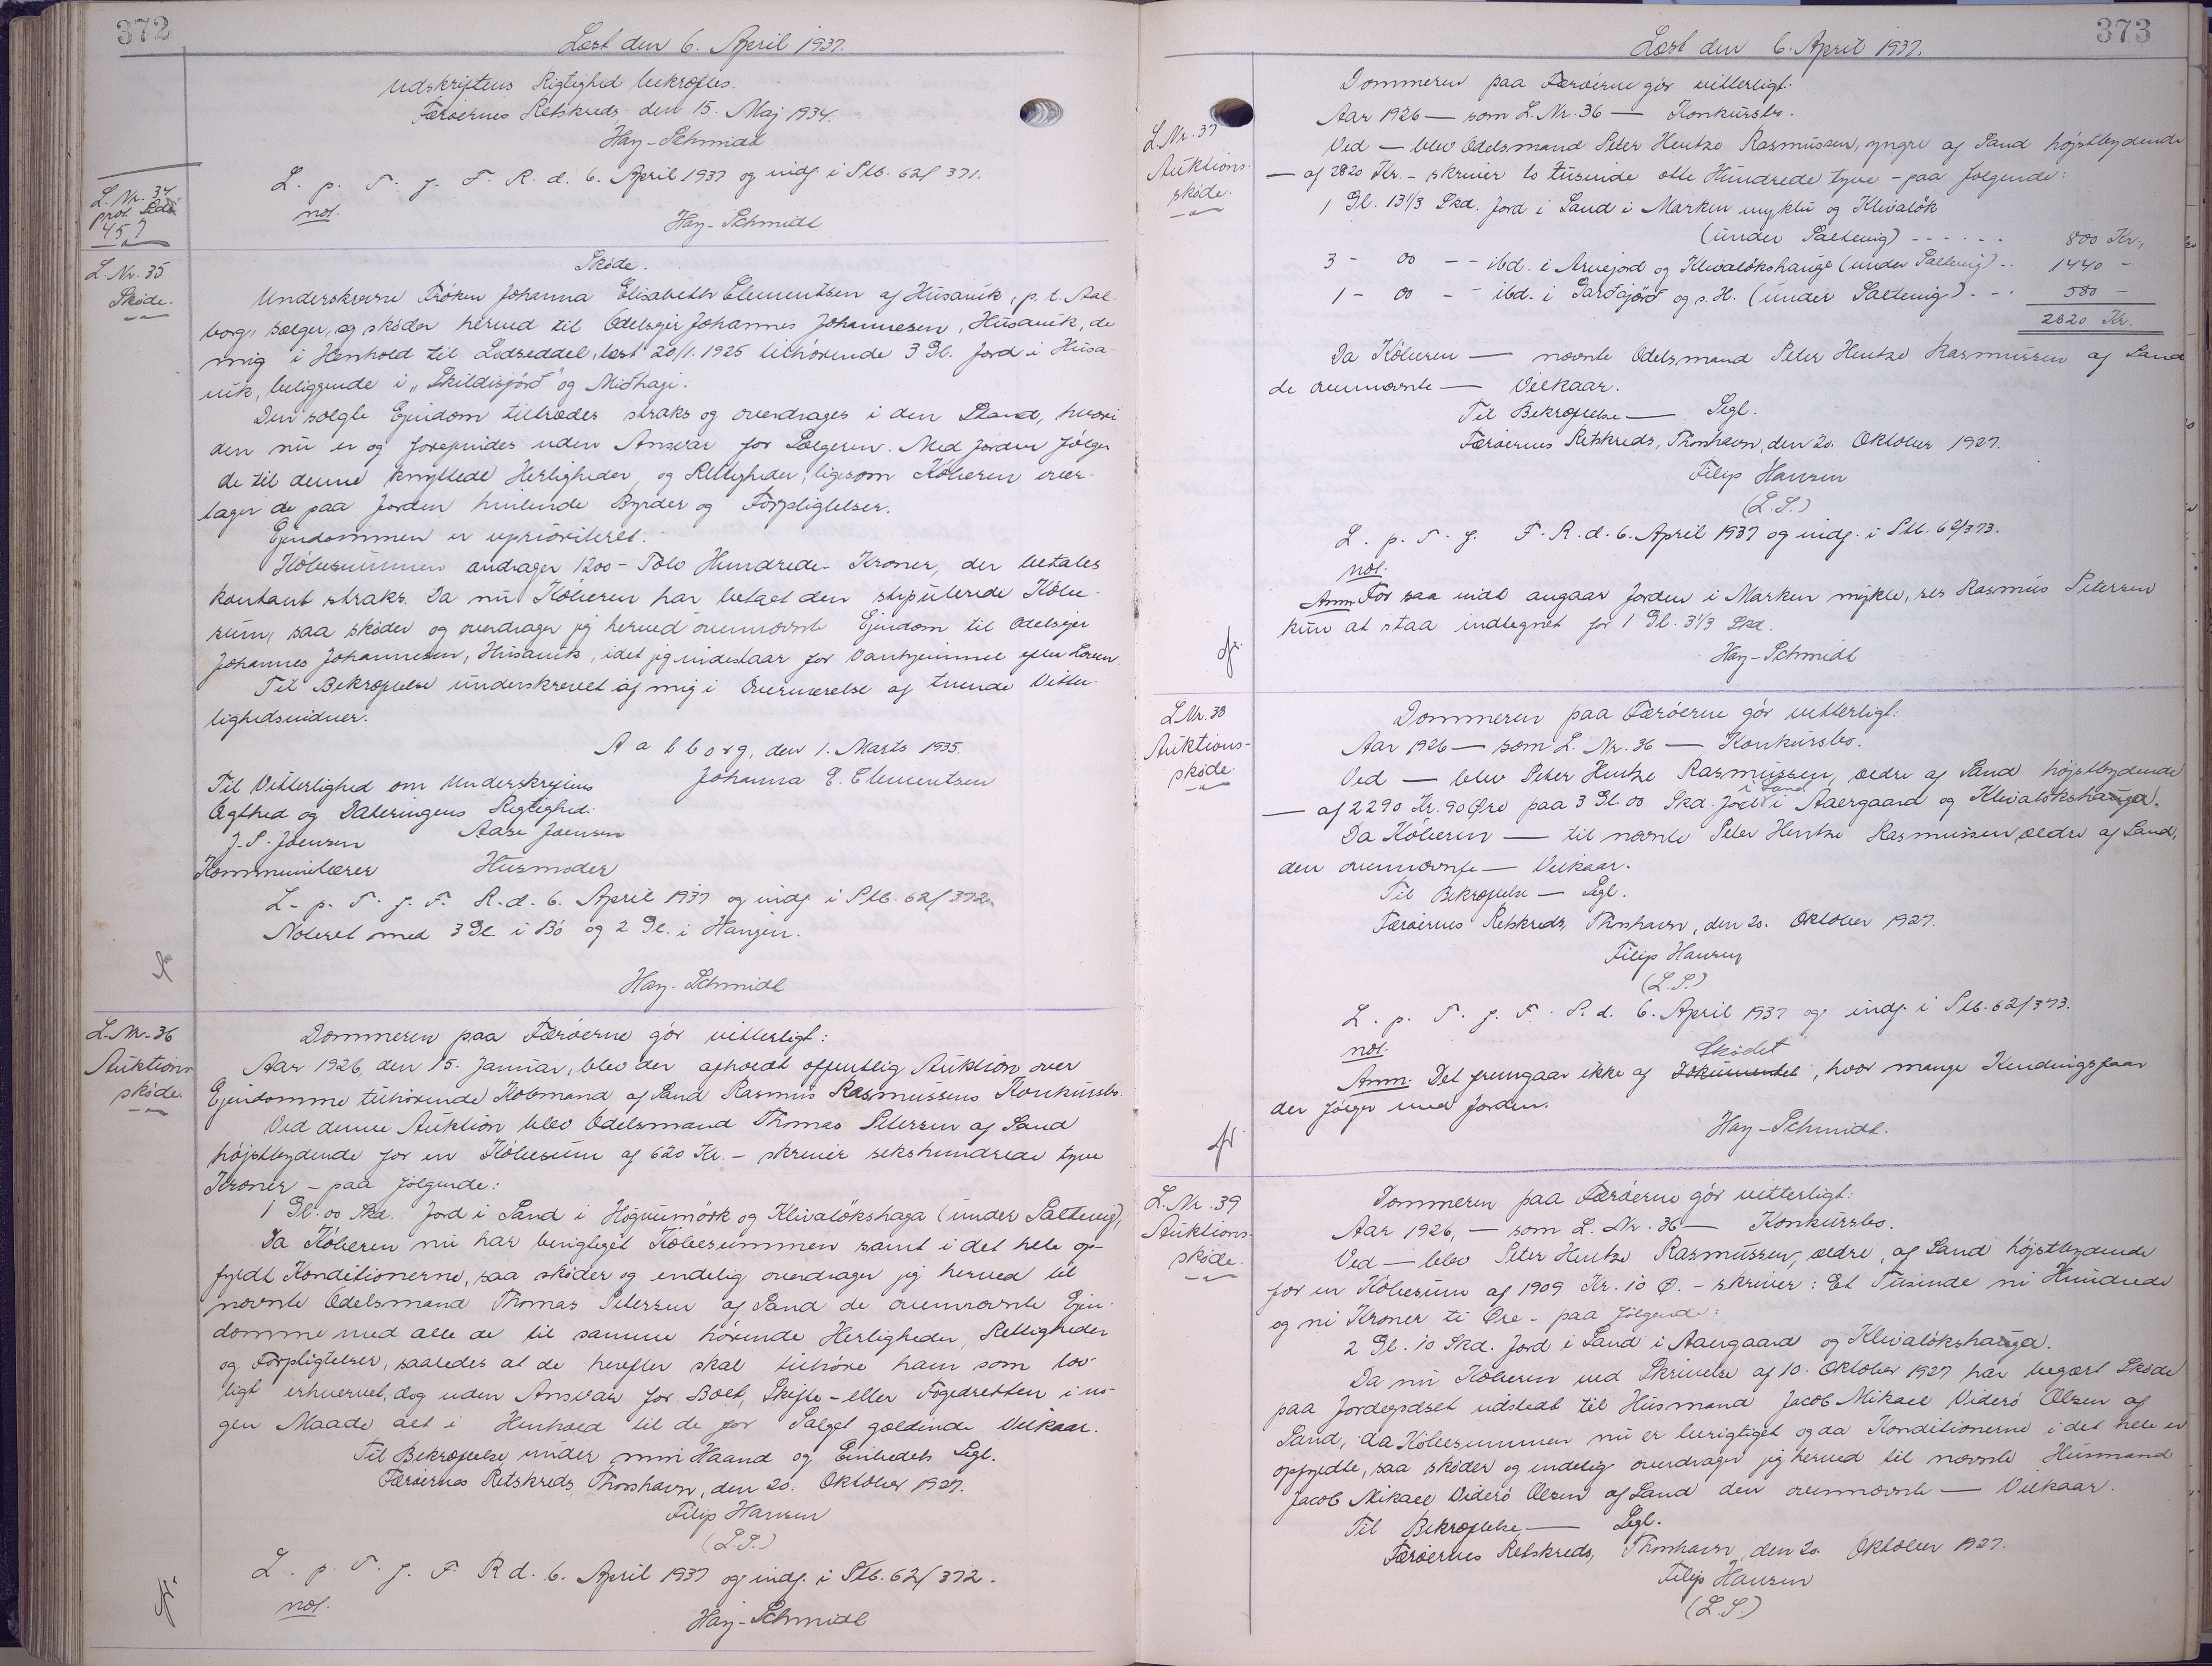 372
Læst den 6. April 1937.
Udskriftens Rigtighed bekræftes.
Færøernes Retskreds, den 15. Maj 1934.
Hay-Schmidt
L. p. T. f. F. R. d. 6. April 1937 og indf. i Skb. 62/ 371.
not.
Hay-Schmidt
L. Nr. 34
prot.
457
L. Nr. 35
Skøde.
Skøde.
Underskrevne Frøken Johanna Elisabeth Clementsen af Húsavík, p. t. Aal-
borg, sælger og skøder herved til Odelsejer Johannes Johannesen, Húsavík, de
mig i Henhold til Lodseddel, læst 20/1. 1925 tilhørende 3 Gl. Jord i Húsa-
vík, beliggende i „Skildisjörð" og Miðhagi.
Den solgte Ejendom tiltrædes straks og overdrages i den Stand, hvori
den nu er og forefindes uden Ansvar for Sælgeren. Med Jorden følger
de til denne knyttede Herligheder og Rettigheder, ligesom Køberen over-
tager de paa Jorden hvilende Byrder og Forpligtelser.
Ejendommen er uprioriteret.
Købesummen andrager 1200 - Tolv Hundrede - Kroner, der betales
kontant straks. Da nu Køberen har betalt den stipulerede Købe-
sum, saa skøder og overdrager jeg herved ovennævnte Ejendom til Odelsejer
Johannes Johannesen, Húsavík, idet jeg indestaar for Vanhjemmel efter Loven.
Til Bekræftelse underskrevet af mig i Overværelse af tvende Vitter-
lighedsvidner.
Aalborg, den 1. Marts 1935.
Johanna E. Clementsen
Til Vitterlighed om Underskriftens
Ægthed og Dateringens Rigtighed:
J. S. Joensen Aase Joensen
Kommunelærer Husmoder
L. p. T. f. F. R. d. 6. April 1937 og indf. i Skb. 62/372.
Noteret med 3 Gl. i Bø og 2 Gl. i Haugin.
Hay-Schmidt
L. Nr. 36
Auktions
skøde.
Dommeren paa Færøerne gör vitterligt:
Aar 1926, den 15. Januar, blev der afholdt offentlig Auktion over
Ejendomme tilhørende Købmand af Sand Rasmus Rasmussens Konkursbo.
Ved denne Auktion blev Odelsmand Thomas Petersen af Sand
højstbydende for en Købesum af 620 Kr. - skriver sekshundrede tyve
Kroner - paa følgende:
1 Gl. 00 Skd. Jord i Sand i Høgumørk og Klivaløkshaga (under Saltvig),
Da Køberen nu har berigtiget Købesummen samt i det hele op-
fyldt Konditionerne, saa skøder og endelig overdrager jeg herved til
nævnte Odelsmand Thomas Petersen af Sand de ovennævnte Ejen-
domme med alle de til samme hørende Herligheder, Rettigheder
og Forpligtelser, saaledes at de herefter skal tilhøre ham som lov-
ligt erhvervet, dog uden Ansvar for Boet, Skifte- eller Fogedretten i no-
gen Maade alt i Henhold til de for Salget gældende Vilkaar.
Til Bekræftelse under min Haand og Embedets Segl.
Færøernes Retskreds, Thorshavn, den 20. Oktober 1927.
Filip Hansen
(L.S.)
L. p. T. f. F. R d. 6. April 1937 og indf. i Skb. 62/ 372.
not.
Hay-Schmidt
373
Læst den 6. April 1937.
L. Nr. 37
Auktions-
skøde.
Dommeren paa Færøerne gör vitterligt:
Aar 1926 — som L. Nr. 36 — Konkursbo.
Ved — blev Odelsmand Peter Hentze Rasmussen, yngre af Sand højstbydende
— af 2820 Kr. - skriver to tusinde otte Hundrede tyve - paa følgende:
1 Gl. 13 1/3 Skd. Jord i Sand i Marken myklu og Klivaløk
(under Saltvig) ------ 800 Kr.,
3 - 00 - - ibd. i Arvejord og Klivaløkshauge (under Saltvig) .. 1440 -
1 - 00 - - ibd. i Garðajörð og s. H. (under Saltvig) - .. 580 -
2820 Kr.
Da Køberen — nævnte Odelsmand Peter Hentze Rasmussen af Sand
de ovennævnte — Vilkaar.
Til Bekræftelse — Segl.
Færøernes Retskreds, Thorshavn, den 20. Oktober 1927.
Filip Hansen
(L.S.)
L. p. T. f. F. R. d. 6. April 1937 og indf. i Skb. 62/373.
not.
Anm. For saa vidt angaar Jorden i Marken mykle, ses Rasmus Petersen
kun at staa indtegnet for 1 Gl. 3 1/3 Skd.
Hay-Schmidt
L. Nr. 38
Auktions-
skøde.
Dommeren paa Færøerne gör vitterligt:
Aar 1926 — som L. Nr. 36 — Konkursbo.
Ved — blev Peter Hentze Rasmussen, ældre af Sand højstbydende
— af 2290 Kr. 90 Øre paa 3 Gl. 00 Skd. Jord i Sand i Aaergaard og Klivaløkshauga.
Da Køberen — til nævnte Peter Hentze Rasmussen, ældre af Sand,
den ovennævnte — Vilkaar.
Til Bekræftelse — Segl.
Færøernes Retskreds, Thorshavn, den 20. Oktober 1927.
Filip Hansen
(L.S.)
L. p. T. f. F. R. d. 6. April 1937 og indf. i Skb. 62/373.
not.
Anm. Det fremgaar ikke af Dokumentet Skødet, hvor mange Kendingsfaar
der følger med Jorden.
Hay-Schmidt.
L. Nr. 39
Auktions-
skøde.
Dommeren paa Færøerne gör vitterligt:
Aar 1926, — som L. Nr. 36 — Konkursbo.
Ved — blev Peter Hentze Rasmussen, ældre, af Sand højstbydende
for en Købesum af 1909 Kr. 10 Ø. - skriver: Et Tusinde ni Hundrede
og ni Kroner ti Øre - paa følgende:
2 Gl. 10 Skd. Jord i Sand i Aaergaard og Klivaløkshauga.
Da nu Køberen ved Skrivelse af 10. Oktober 1927 har begært Skøde
paa Jordegodset udstedt til Husmand Jacob Mikael Viderø Olsen af
Sand, da Købesummen nu er berigtiget og da Konditionerne i det hele er
opfyldte, saa skøder og endelig overdrager jeg herved til nævnte Husmand
Jacob Mikael Viderø Olsen af Sand den ovennævnte — Vilkaar.
Til Bekræftelse — Segl.
Færøernes Retskreds, Thorshavn, den 20. Oktober 1927.
Filip Hansen
(L.S.)